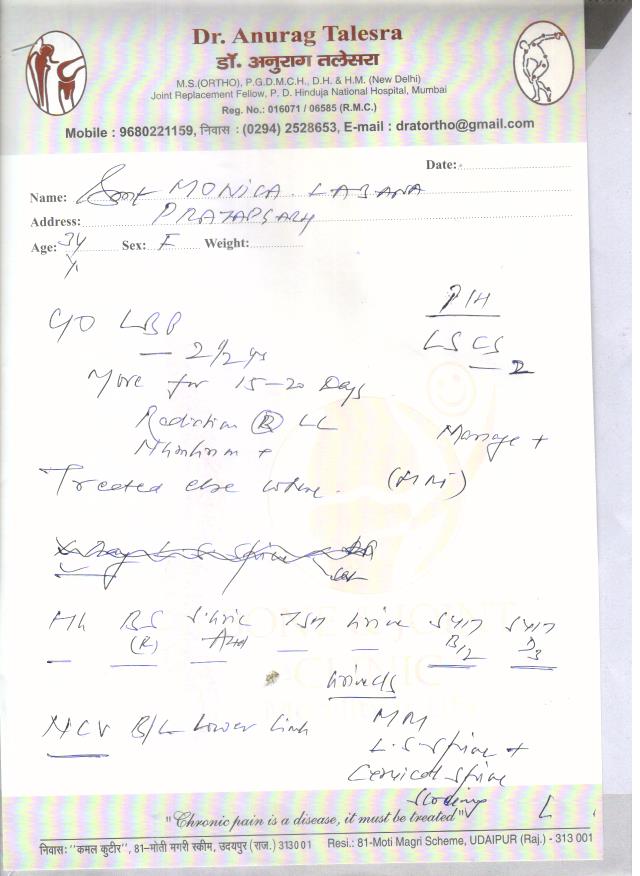 Dr. Anurag Talesra
डॉ. अनुराग तलेसरा
M.S.(ORTHO), P.G.D.M.C.H., D.H. & H.M. (New Delhi)
Joint Replacement Fellow, P. D. Hinduja National Hospital, Mumbai
Reg. No.: 016071 / 06585 (R.M.C.)
Mobile : 9680221159, निवास : (0294) 2528653, E-mail : dratortho@gmail.com
Date:
Name: MONICA LABANA
Address: PRATAPGARH
Age: 34 Sex: F Weight:
P/H
C/O LBP
LSCS
— 2
— 2 1/2 yrs
More for 15-20 Days
Radiation (R) LL
Massage +
+
Treated else where. (MRI)
BS (R) Uric Acid TSH Urine B12 D3
Urine C/S
NCV B/L Lower Limb
L.S-Spine +
Cervical Spine
"Chronic pain is a disease, it must be treated"
निवास: "कमल कुटीर", 81-मोती मगरी स्कीम, उदयपुर (राज.) 313001 Resi.: 81-Moti Magri Scheme, UDAIPUR (Raj.) - 313 001